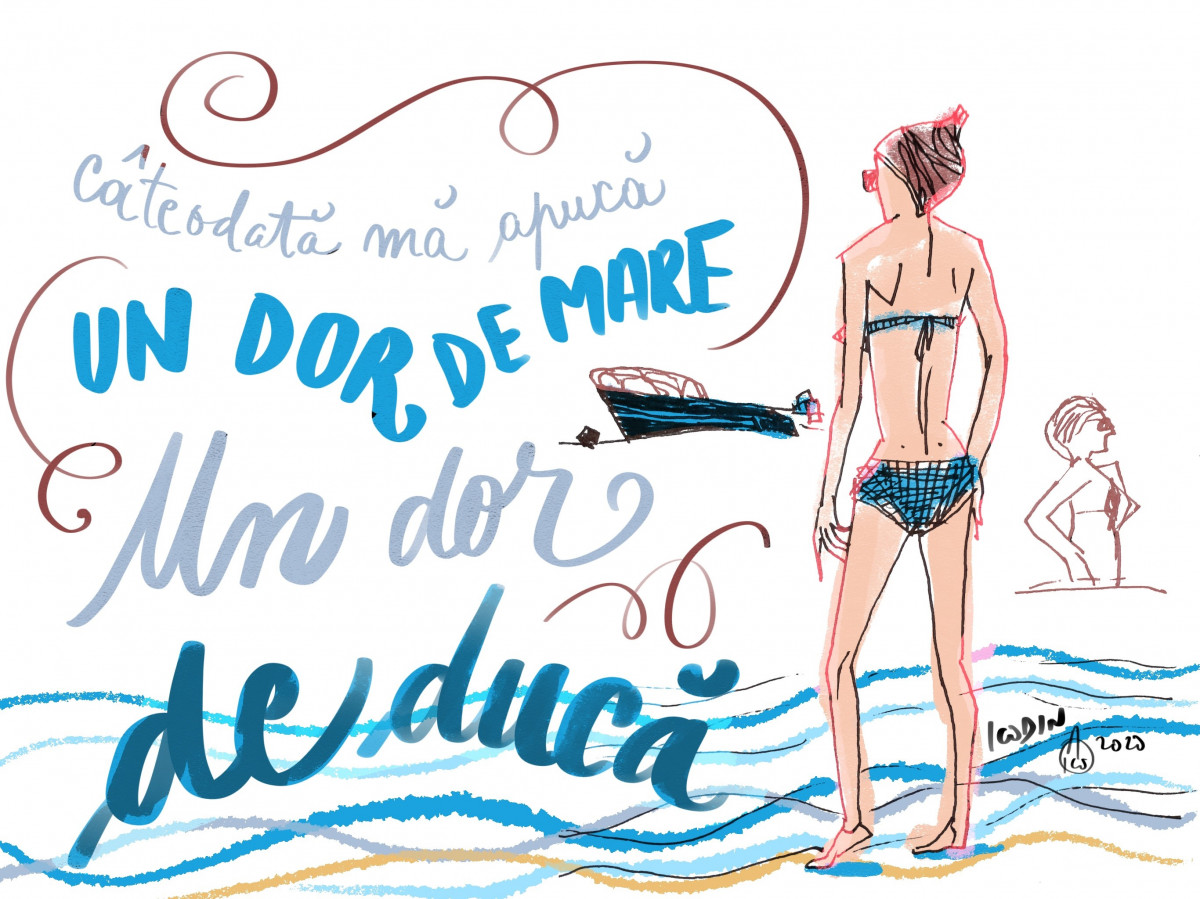 câteodată mă apucă
UN DOR DE MARE
Un dor
de ducă
IODIN
2020